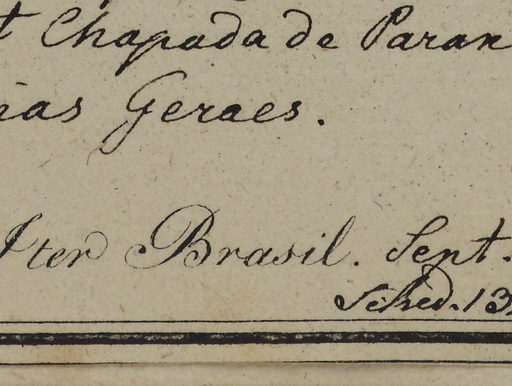 t Chapada de Paran
nas Geraes.
Iter Brasil. Sept.
Sched. 13